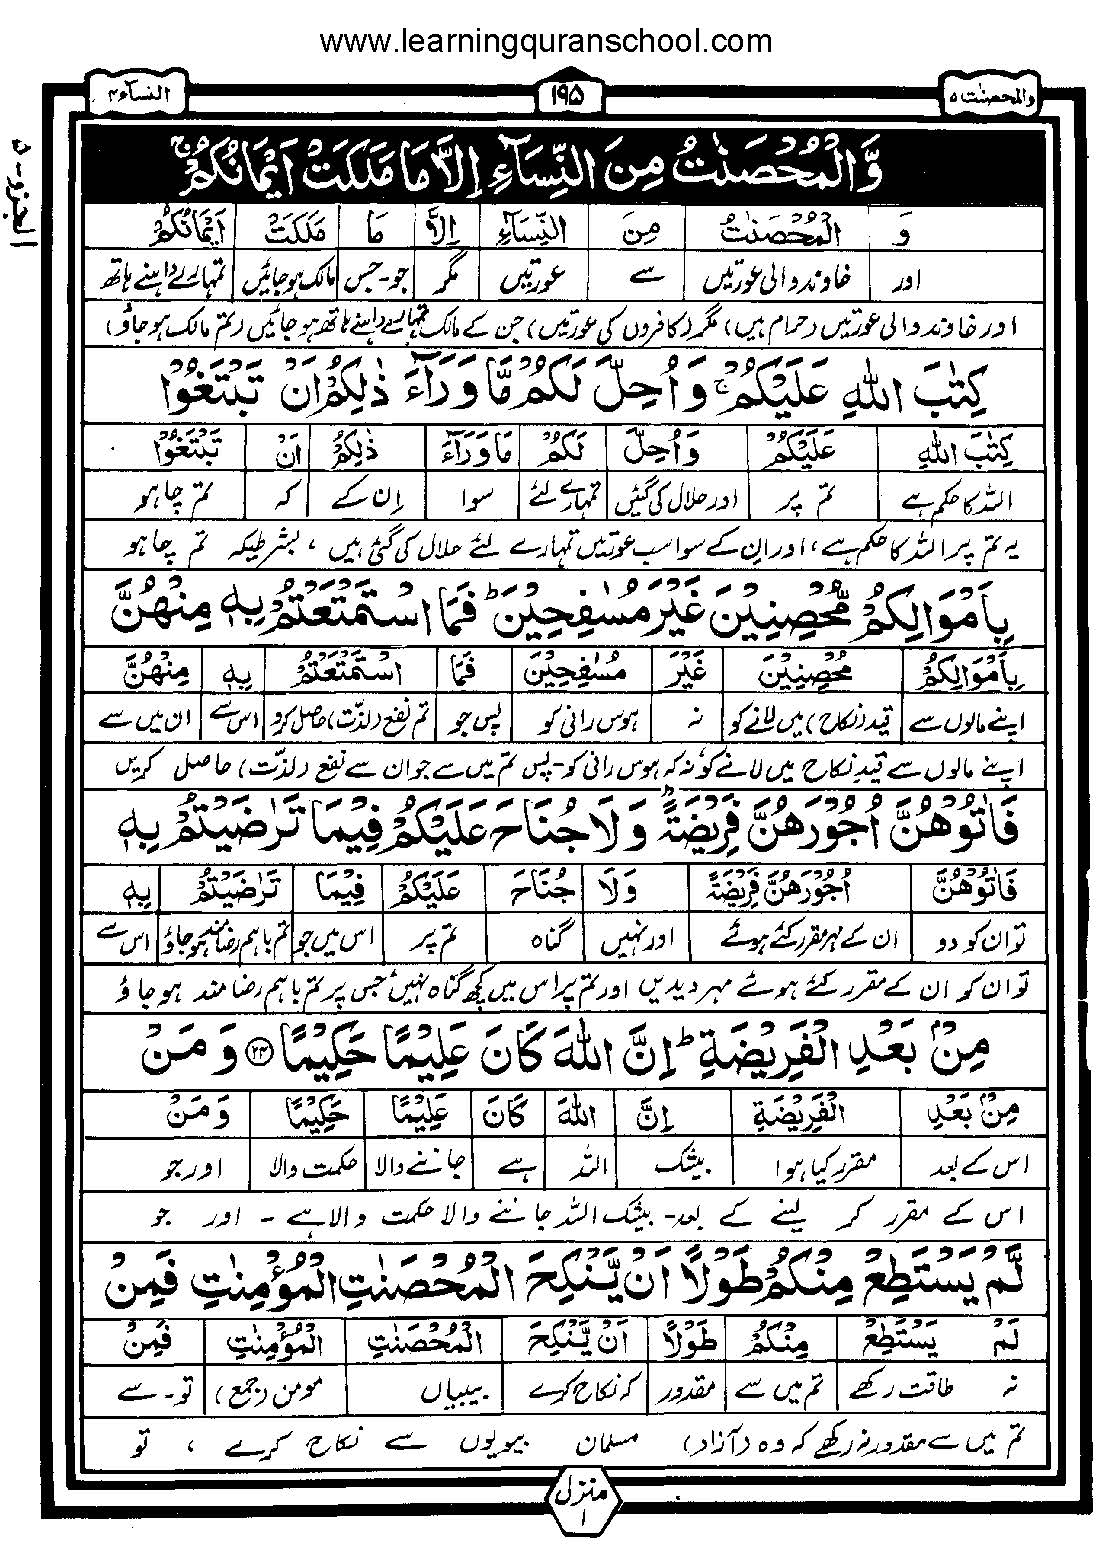 www.learningquranschool.com
والمحصنٰت ۵
۱۹۵
النسآء ۴
الجزو - ۵
وَّالْمُحْصَنٰتُ مِنَ النِّسَآءِ اِلَّا مَا مَلَكَتْ اَيْمَانُكُمْ ۚ
وَ الْمُحْصَنٰتُ مِنَ النِّسَآءِ اِلَّا مَا مَلَكَتْ اَيْمَانُكُمْ
اور خاوند والی عورتیں سے عورتیں مگر جو-جس مالک ہو جائیں تمہارے داہنے ہاتھ
اور خاوند والی عورتیں (حرام ہیں) مگر (کافروں کی عورتیں) جن کے مالک تمہارے داہنے ہاتھ ہو جائیں (تم مالک ہو جاؤ)
كِتٰبَ اللّٰهِ عَلَيْكُمْ ۚ وَاُحِلَّ لَكُمْ مَّا وَرَآءَ ذٰلِكُمْ اَنْ تَبْتَغُوْا
كِتٰبَ اللّٰهِ عَلَيْكُمْ وَاُحِلَّ لَكُمْ مَا وَرَآءَ ذٰلِكُمْ اَنْ تَبْتَغُوْا
اللہ کا حکم ہے تم پر اور حلال کی گئیں تمہارے لئے سوا اِن کے کہ تم چاہو
یہ تم پر اللہ کا حکم ہے، اور اِن کے سوا سب عورتیں تمہارے لئے حلال کی گئی ہیں، بشرطیکہ تم چاہو
بِاَمْوَالِكُمْ مُّحْصِنِيْنَ غَيْرَ مُسٰفِحِيْنَ ؕ فَمَا اسْتَمْتَعْتُمْ بِهٖ مِنْهُنَّ
بِاَمْوَالِكُمْ مُحْصِنِيْنَ غَيْرَ مُسٰفِحِيْنَ فَمَا اسْتَمْتَعْتُمْ بِهٖ مِنْهُنَّ
اپنے مالوں سے قید (نکاح) میں لانے کو نہ ہوس رانی کو پس جو تم نفع (لذت) حاصل کرو اس سے ان میں سے
اپنے مالوں سے قید نکاح میں لانے کو نہ کہ ہوس رانی کو - پس تم میں سے جو ان سے نفع (لذت) حاصل کریں
فَاٰتُوْهُنَّ اُجُوْرَهُنَّ فَرِيْضَةً ؕ وَلَا جُنَاحَ عَلَيْكُمْ فِيْمَا تَرٰضَيْتُمْ بِهٖ
فَاٰتُوْهُنَّ اُجُوْرَهُنَّ فَرِيْضَةً وَلَا جُنَاحَ عَلَيْكُمْ فِيْمَا تَرٰضَيْتُمْ بِهٖ
تو ان کو دو ان کے مہر مقرر کئے ہوئے اور نہیں گناہ تم پر اس میں جو تم باہم رضا مند ہو جاؤ اس سے
تو ان کو ان کے مقرر کئے ہوئے مہر دیدیں اور تم پر اس میں کچھ گناہ نہیں جس پر تم باہم رضا مند ہو جاؤ
مِنْۢ بَعْدِ الْفَرِيْضَةِ ؕ اِنَّ اللّٰهَ كَانَ عَلِيْمًا حَكِيْمًا ﴿۲۴﴾ وَ مَنْ
مِنْۢ بَعْدِ الْفَرِيْضَةِ اِنَّ اللّٰهَ كَانَ عَلِيْمًا حَكِيْمًا وَ مَنْ
اس کے بعد مقرر کیا ہوا بیشک اللہ ہے جاننے والا حکمت والا اور جو
اس کے مقرر کر لینے کے بعد - بیشک اللہ جاننے والا حکمت والا ہے - اور جو
لَّمْ يَسْتَطِعْ مِنْكُمْ طَوْلًا اَنْ يَّنْكِحَ الْمُحْصَنٰتِ الْمُؤْمِنٰتِ فَمِنْ
لَمْ يَسْتَطِعْ مِنْكُمْ طَوْلًا اَنْ يَّنْكِحَ الْمُحْصَنٰتِ الْمُؤْمِنٰتِ فَمِنْ
نہ طاقت رکھے تم میں سے مقدور کہ نکاح کرے بیبیاں مومن (جمع) تو - سے
تم میں سے مقدور نہ رکھے کہ وہ (آزاد) مسلمان بیویوں سے نکاح کرے ، تو
منزل ۱